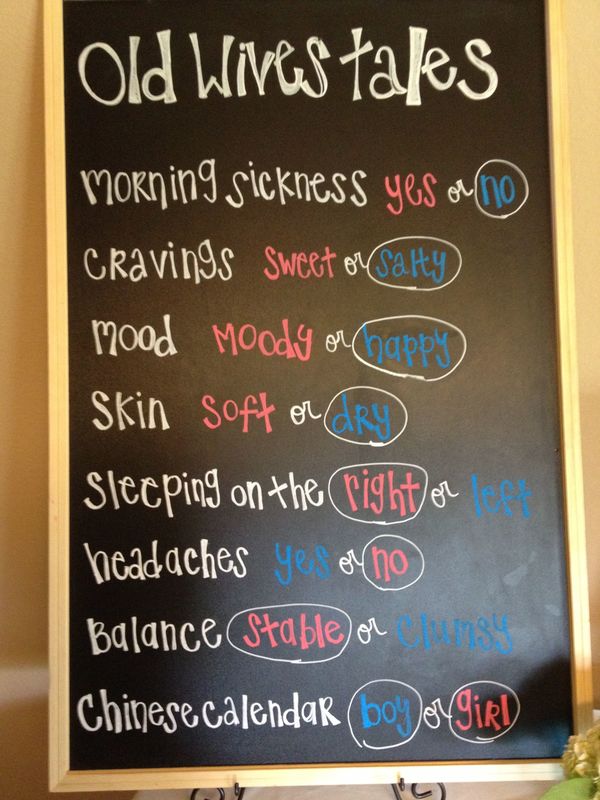 Old Wives tales
morning sickness yes or no
Cravings sweet or salty
mood moody or happy
skin soft or dry
sleeping on the right or left
headaches yes or no
Balance stable or clumsy
Chinese calendar boy or girl